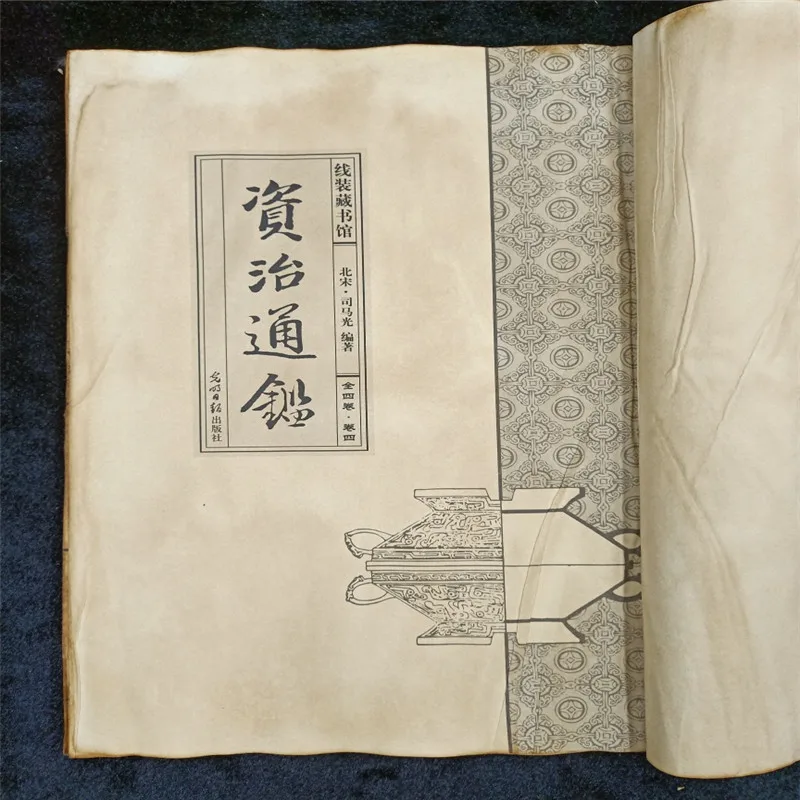 线装藏书馆
北宋·司马光 编著
全四卷·卷四
資治通鑑
光明日报出版社